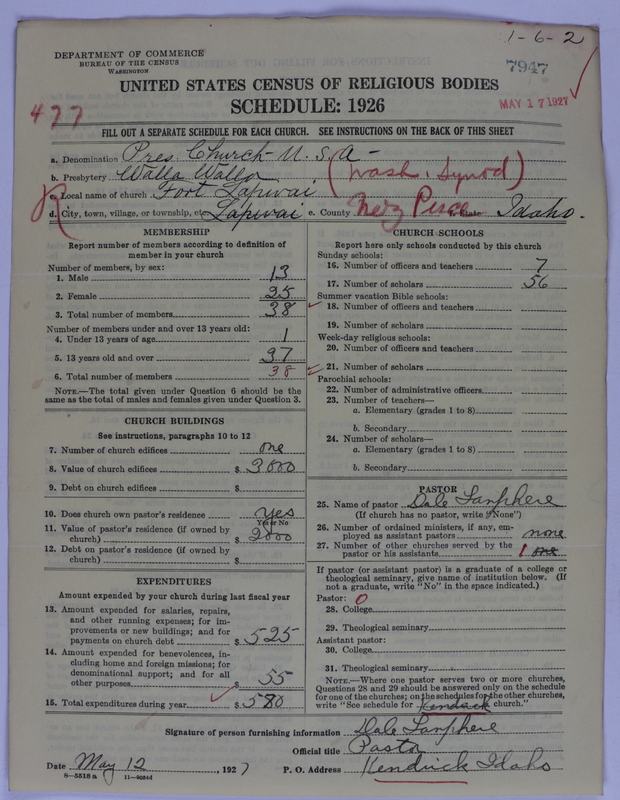 1-6-2
DEPARTMENT OF COMMERCE
BUREAU OF THE CENSUS
WASHINGTON
7947
UNITED STATES CENSUS OF RELIGIOUS BODIES
MAY 17 1927
477
SCHEDULE: 1926
FILL OUT A SEPARATE SCHEDULE FOR EACH CHURCH. SEE INSTRUCTIONS ON THE BACK OF THIS SHEET
a. Denomination Pres. Church - U. S. A -
b. Presbytery Walla Walla (Wash. Synod)
c. Local name of church Fort Lapwai
d. City, town, village, or township, etc. Lapwai e. County Nez Perce f. State Idaho.
MEMBERSHIP
Report number of members according to definition of member in your church
Number of members, by sex:
1. Male 13
2. Female 25
3. Total number of members 38
Number of members under and over 13 years old:
4. Under 13 years of age 1
5. 13 years old and over 37
6. Total number of members 38
NOTE.—The total given under Question 6 should be
same as the total of males and females given under Question 3.
CHURCH BUILDINGS
See instructions, paragraphs 10 to 12
7. Number of church edifices one
8. Value of church edifices $ 3000
9. Debt on church edifices $
10. Does church own pastor's residence yes
Yes or No
11. Value of pastor's residence (if owned by
church) $ 2000
12. Debt on pastor's residence (if owned by
church) $
EXPENDITURES
Amount expended by your church during last fiscal year
13. Amount expended for salaries, repairs,
and other running expenses; for im-
provements or new buildings; and for
payments on church debt $ 525
14. Amount expended for benevolences, in-
cluding home and foreign missions; for
denominational support; and for all
other purposes $ 55
15. Total expenditures during year $ 580
CHURCH SCHOOLS
Report here only schools conducted by this church
Sunday schools:
16. Number of officers and teachers 7
17. Number of scholars 56
Summer vacation Bible schools:
18. Number of officers and teachers
19. Number of scholars
Week-day religious schools:
20. Number of officers and teachers
21. Number of scholars
Parochial schools:
22. Number of administrative officers
23. Number of teachers—
a. Elementary (grades 1 to 8)
b. Secondary
24. Number of scholars—
a. Elementary (grades 1 to 8)
b. Secondary
PASTOR
25. Name of pastor Dale Lanphere
(If church has no pastor, write "None")
26. Number of ordained ministers, if any, em-
ployed as assistant pastors none
27. Number of other churches served by the
pastor or his assistants 1 one
If pastor (or assistant pastor) is a graduate of a college or
theological seminary, give name of institution below. (If
not a graduate, write "No" in the space indicated.)
Pastor: 0
28. College
29. Theological seminary
Assistant pastor:
30. College
31. Theological seminary
NOTE.—Where one pastor serves two or more churches,
Questions 28 and 29 should be answered only on the schedule
for one of the churches; on the schedules for the other churches,
write "See schedule for Kendrick church."
Signature of person furnishing information Dale Lanphere
Official title Pastor
Date May 12, 1927 P. O. Address Kendrick Idaho
8-5518 a